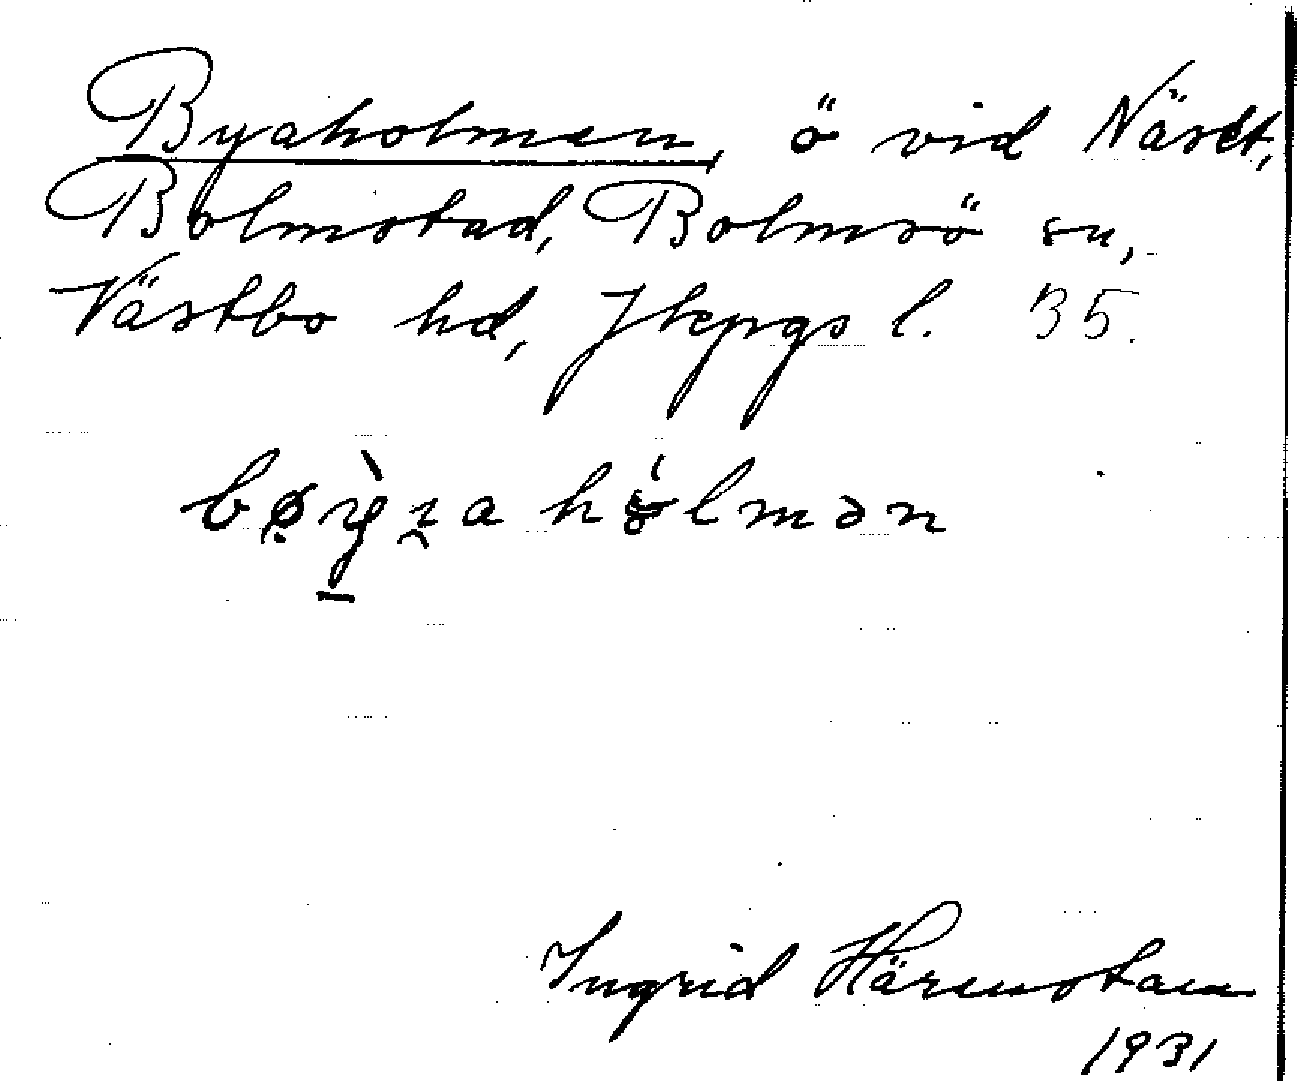 Byaholmen, ö vid Näset,
Bolmstad, Bolmsö sn,
Västbo hd, Jkpgs l. 35.
Ingrid Härenstam
1931